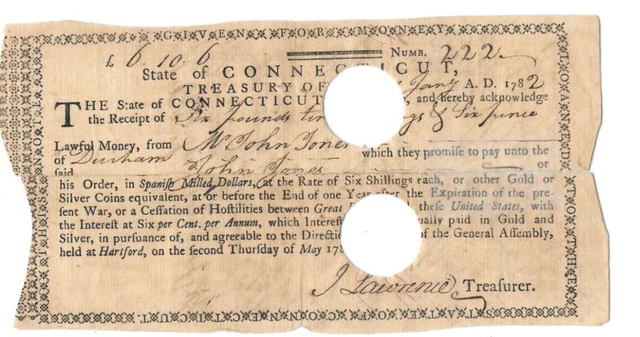 GIVEN FOR MONEY
LOANED TO THE
£ 6.10.6 NUMB. 222
State of CONNECTICUT,
TREASURY OF Jany A. D. 1782
THE State of CONNECTICUT and hereby acknowledge
the Receipt of Six pounds ten & Six pence
Lawful Money, from Mr John Jones
of Durham which they promise to pay unto the
said John Jones or
his Order, in Spanish Milled Dollars, at the Rate of Six Shillings each, or other Gold or
Silver Coins equivalent, at or before the End of one Year after the Expiration of the pre-
sent War, or a Cessation of Hostilities between Great these United States, with
the Interest at Six per Cent. per Annum, which Interest paid in Gold and
Silver, in pursuance of, and agreeable to the of the General Assembly,
held at Hartford, on the second Thursday of May
J Lawrence Treasurer.
STATE OF CONNECTICUT.